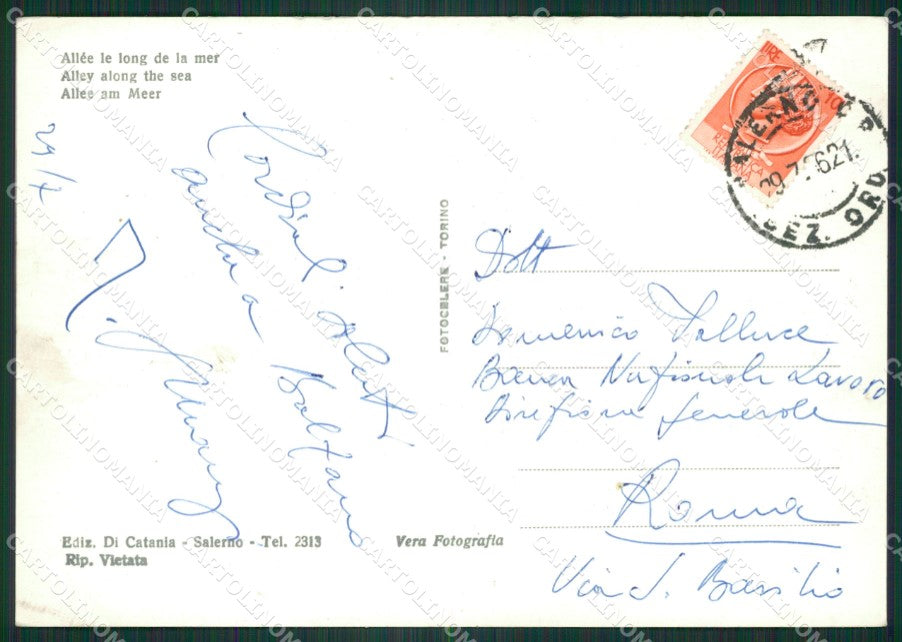 Allée le long de la mer
Alley along the sea
Allee am Meer
29/7
Cordiali saluti
anche a
FOTOCELERE - TORINO
LIRE 10
SALERNO C.P.
29.7.5621.
SEZ. ORD
Dott
Domenico
Banca Nazionale Lavoro
Direzione Generale
Roma
Via S. Basilio
Ediz. Di Catania - Salerno - Tel. 2313
Rip. Vietata
Vera Fotografia
CARTOLINOMANIA